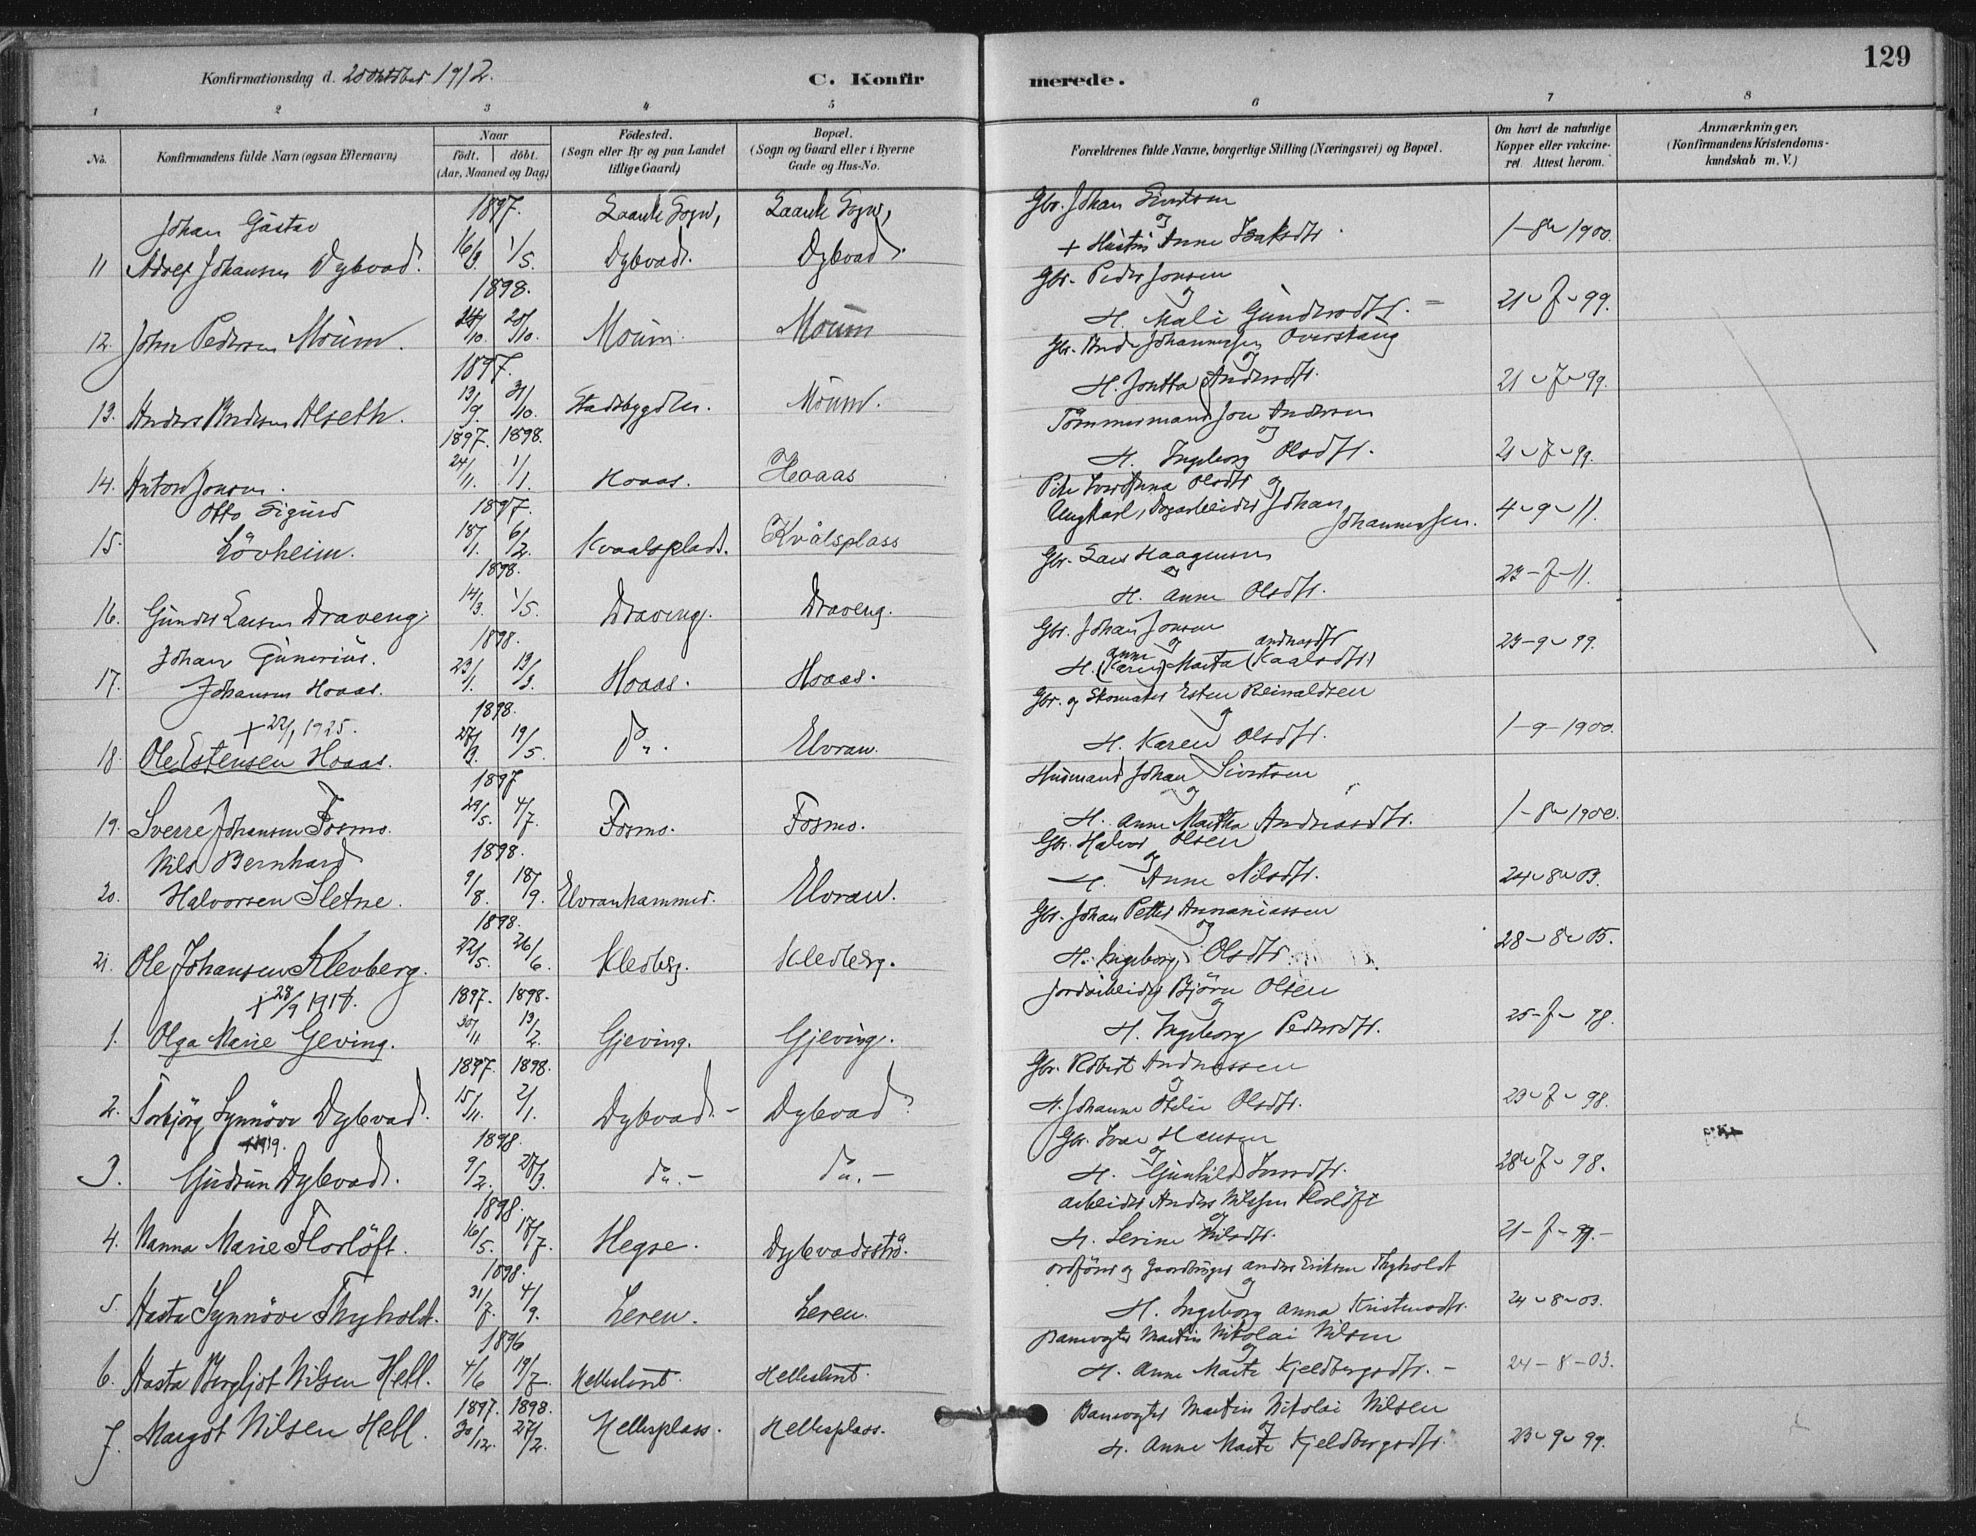 129
Konfirmationsdag d. 20 oktober 1912.
C. Konfirmerede.
1 2 3 4 5 6 7 8
No.
Konfirmandens fulde Navn (ogsaa Efternavn)
Naar
født. døbt.
(Aar, Maaned og Dag)
Fødested.
(Sogn eller By og paa Landet
tillige Gaard)
Bopæl.
(Sogn og Gaard eller i Byerne
Gade og Hus-No.
Forældrenes fulde Navne, borgerlige Stilling (Næringsvei) og Bopæl.
Om havt de naturlige
Kopper eller vakcine-
ret. Attest herom.
Anmærkninger,
(Konfirmandens Kristendoms-
kundskab m. V.)
1897. Sogn, Sogn, Gbr. Johan Sivertsen
Johan Gustav og
11 Adolf Johansen Dybvad. 16/3 1/5. Dybvad. Dybvad. + Hustru Anne 1-8-1900.
1898. Gbr. Peder Jonsen
og
12. John Pedersen Moum. /10 20/10. Moum. Moum H. Mali Gundersdtr. 21-7-99.
1897. Gbr. Johannesen Overskaug
og
13. Anders Alseth. 13/9. 31/10. Stadsbygden. Moum. H. Andersdtr. 21-7-99.
1897. 1898. Tømmermand Jon Andersen
og
14. Anton Jonsen. 24/11. 1/1. Hoaas. Hoaas H. Ingeborg Olsdtr. 21-7-99.
Otto Sigurd 1897. Pike Anna Olsdtr og
15. Løvheim. 18/1. 6/2. Kvaalsplads. Kvålsplass Ungkarl, Johan Johannessen. 4-9-11.
1898. Gbr. Lars Haagensen
og
16. Gunder Larsen Draveng. 14/3. 1/5. Draveng. Draveng. H. Anne Olsdtr. 23-7-11.
Johan Gunerius. 1898. Gbr. Johan Jonsen
og
anne andersdtr
17. Johansen Hoaas. 23/1. 13/3. Hoaas. Hoaas. H. (Karen) Marta 23-9-99.
+ 22/1 1925. 1898. Gbr. og Skomaker Esten Reinaldsen
og
18 Ole Estensen Hoaas. 27/3. 19/5. Do. Elvran. H. Karen Olsdtr. 1-9-1900.
1897 Husmand Johan Sivertsen
og
19. Sverre Johansen Fosmo. 29/5. 4/7. Fosmo. Fosmo. H. Anne Martha Andreasdtr. 1-8-1900.
Nils Bernhard 1898. Gbr. Halvor Olsen
og
20. Halvorsen Sletne. 9/8. 18/9. Elvranhammer. Elvran. H. Anne Nilsdtr. 24-8-03.
1898. Gbr. Johan Petter Annaniassen
og
21. Ole Johansen Klevberg. 22/5. 26/6. Klevberg. Klevberg. H. Ingeborg Olsdtr. 28-8-05.
+ 28/9 1918. 1897. 1898. Jordarbeider Bjørn Olsen
og
1. Olga Marie Geving. 30/11 13/2. Gjeving. Gjeving. H. Ingeborg Pedersdtr. 25-7-98.
1897. 1898. Gbr. Robert Andreassen
og
2. Torbjørg Synnøve Dybvad. 15/11. 2/1. Dybvad. - Dybvad H. Johanne Otelie Olsdtr. 23-7-98.
+1919. 1898. Gbr. Ivar Hansen
og
3. Gudrun Dybvad. 9/2. 27/3. do. - do. - H. Gunhild Iversdtr. 28-7-98.
1898. arbeider Anders Nilssen Florløft
og
4. Nanna Marie Florløft. 16/5. 17/7. Hegre. Dybvadsstrø. H. Serine Nilsdtr. 21-7-99.-
1898. ordfører og Gaardbruger Anders Eriksen Thyholdt
og
5. Aasta Synnøve Thyholdt. 31/7. 4/9. Leren. Leren. H. Ingeborg Anna Kristensdtr. 24-8-03.
1896 Banevogter Martin Nikolai Nilsen
og
6. Aasta Bergljot Nilsen Hell. 4/6 19/7. Helleslent. Helleslent. H. Anne Marta Kjeldbergsdtr. - 24-8-03.
1897. 1898. Banevogter Martin Nikolai Nilsen
og
7. Margot Nilsen Hell. 30/12. 27/2. Hellesplass. Hellesplass. H. Anne Marta Kjeldbergsdtr. 23-9-99.